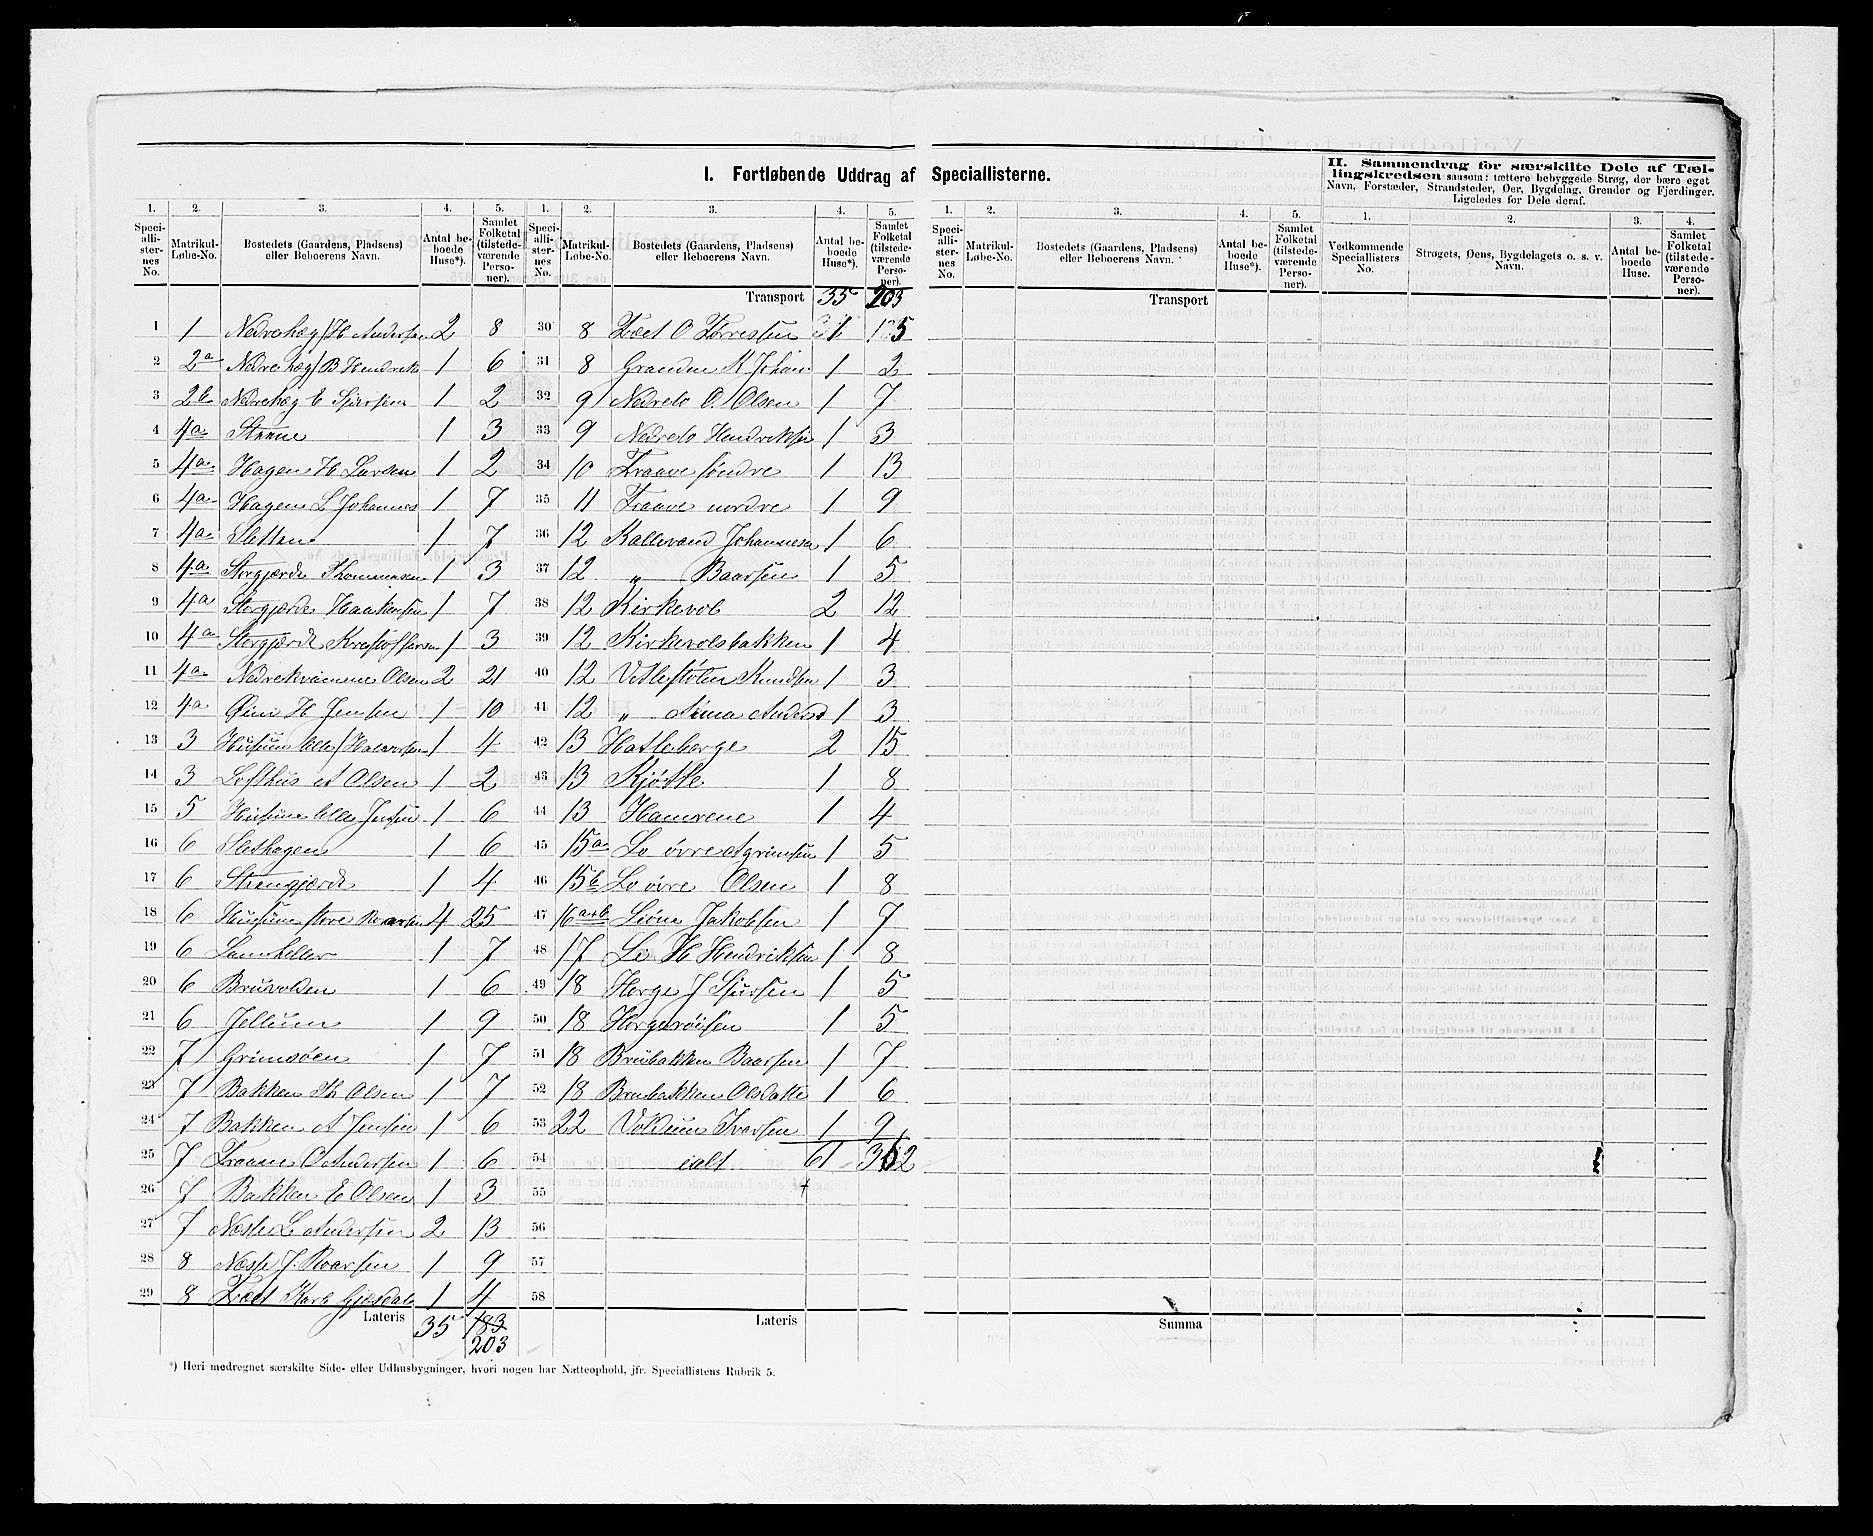 I. Fortløbende Uddrag af Speciallisterne.
II. Sammendrag for særskilte Dele af Tæl-
lingskredsen saasom: tættere bebyggede Strøg, der bære eget
Navn, Forstæder, Strandsteder, Øer, Bygdelag, Grender og Fjerdinger.
Ligeledes for Dele deraf.
1. 2. 3. 4. 5. 1. 2. 3. 4. 5. 1. 2. 3. 4. 5. 1. 2. 3. 4.
Speciallisternes No. Matrikul-Løbe-No. Bostedets (Gaardens, Pladsens) eller Beboerens Navn. Antal beboede Huse*). Samlet Folketal (tilstedeværende Personer).
Speciallisternes No. Matrikul-Løbe-No. Bostedets (Gaardens, Pladsens) eller Beboerens Navn. Antal beboede Huse*). Samlet Folketal (tilstedeværende Personer).
Speciallisternes No. Matrikul-Løbe-No. Bostedets (Gaardens, Pladsens) eller Beboerens Navn. Antal beboede Huse*). Samlet Folketal (tilstedeværende Personer).
Vedkommende Speciallisters No. Strøgets, Øens, Bygdelagets o. s. v. Navn. Antal beboede Huse. Samlet Folketal (tilstedeværende Personer).
1 1 Nedrehæg/H Andersen 2 8
2 2a Nedrehæg/B Hendrik 1 6
3 2b Nedrehæg E Sjursen 1 2
4 4a 1 3
5 4a Hagen H Larsen 1 2
6 4a Hagen L Johannes 1 7
7 4a Sletten 1 7
8 4a Storgjærde Thommesen 1 3
9 4a Storgjærde Haakensen 1 7
10 4a Storgjærde Krestoffersen 1 3
11 4a Nedrekvamme Olsen 2 21
12 4a Øine H Jensen 1 10
13 3 Husum lille/Halvorsen 1 4
14 3 Lofthus A Olsen 1 2
15 5 Husum lille Jensen 1 6
16 6 Slethagen 1 6
17 6 Strengjærde 1 4
18 6 Husum store Roarsen 4 25
19 6 Lamheller 1 7
20 6 Bruvolden 1 6
21 6 Jellum 1 9
22 7 Grimsøen 1 7
23 7 Bakken Th Olsen 1 7
24 7 Bakken A Jensen 1 6
25 7 Traaen O Andersen 1 6
26 7 Bakken E Olsen 1 3
27 7 Næsse L Andersen 2 13
28 8 Næsse J. Roarsen 1 9
29 8 Træet Gjesdal 1 4
Lateris 35 183
203
Transport 35 203
30 8 Træet O Torressen 1 5
31 8 Granden K Johan 1 2
32 9 Nedrelo O. Olsen 1 7
33 9 Nedrelo Hendriksen 1 3
34 10 Traave søndre 1 13
35 11 Traave nordre 1 9
36 12 Kallevand Johannesen 1 6
37 12 „ Baarsen 1 5
38 12 Kirkevol 2 12
39 12 Kirkevolsbakken 1 4
40 12 Vetlestølen Knudsen 1 3
41 12 „ Anna Andersd 1 3
42 13 Hatleberge 2 15
43 13 Kjøtle 1 8
44 13 Hamrene 1 4
45 15a Lo øvre Agrimsen 1 5
46 15b Lo øvre Olsen 1 8
47 16a+b Leone Jakobsen 1 7
48 17 Li H Hendriksen 1 8
49 18 Horge J Sjursen 1 5
50 18 Horgerøisen 1 5
51 18 Brubakken Baarsen 1 7
52 18 Brubakken Olsdatte 1 6
53 22 Voldum Ivarsen 1 9
54 ialt 61 362
55
56
57
58
Lateris
Transport
Summa
*) Heri medregnet særskilte Side- eller Udhusbygninger, hvori nogen har Natteophold, jfr. Speciallistens Rubrik 5.